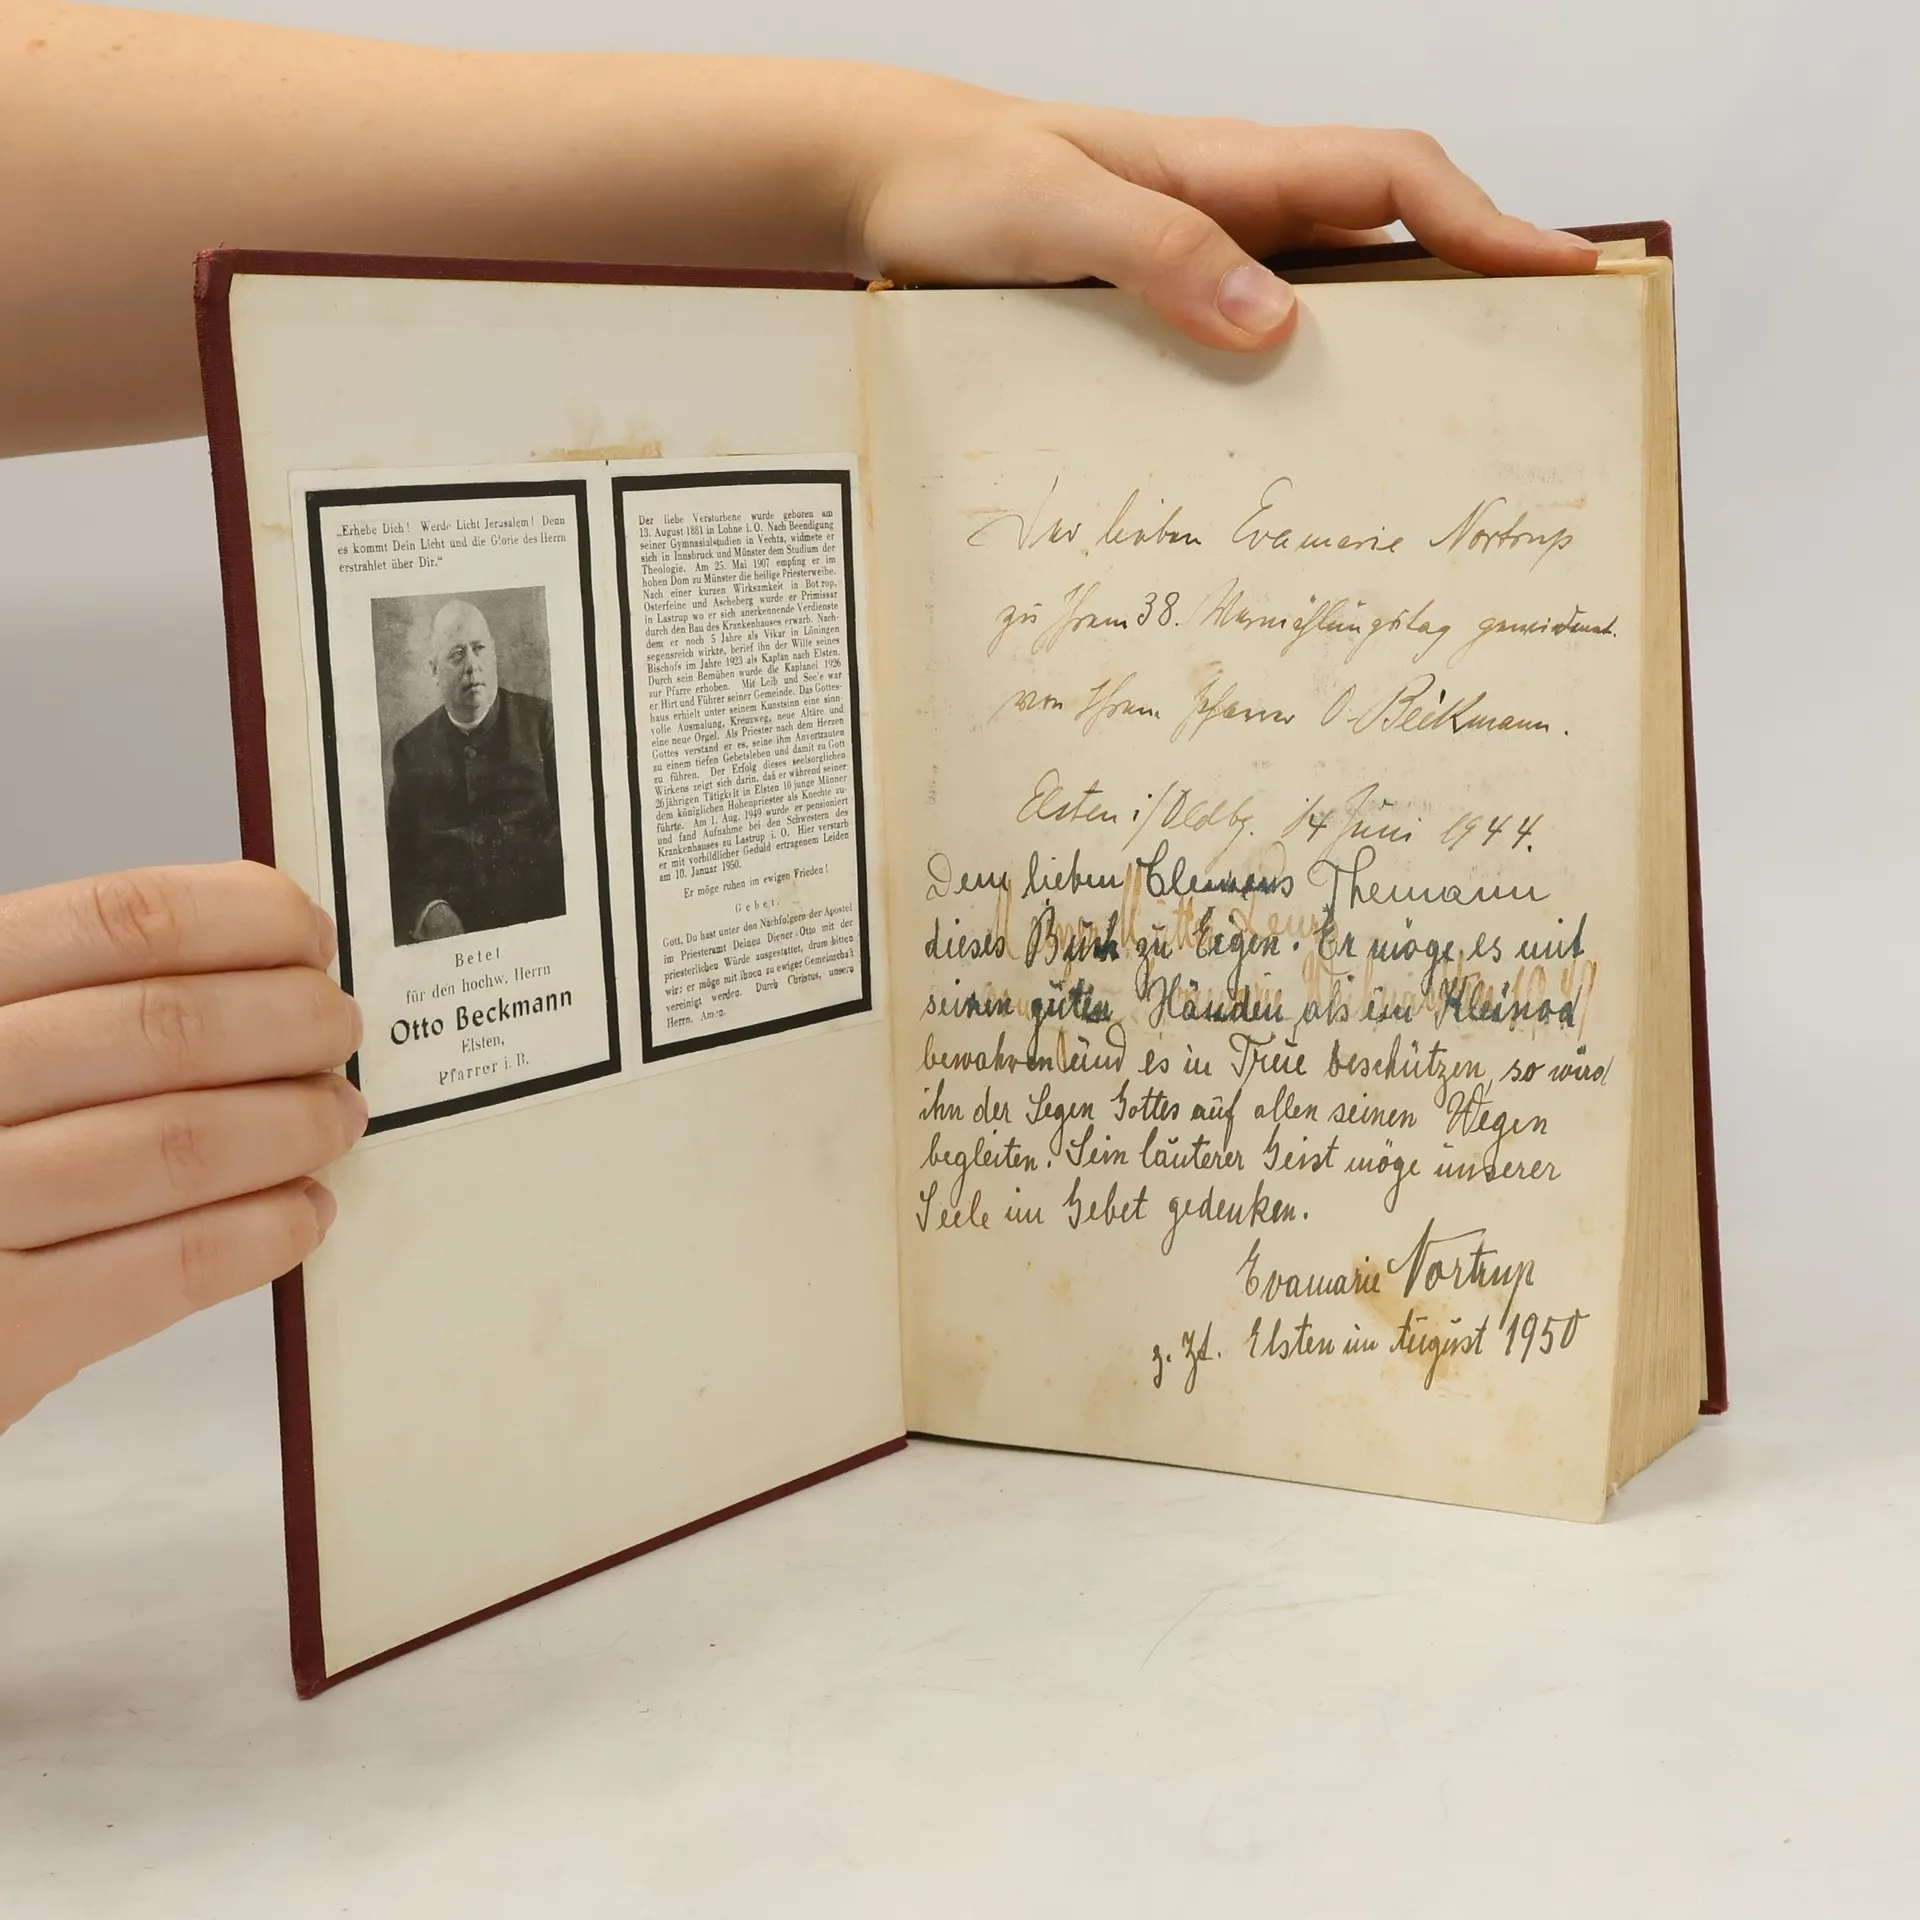 „Erhebe Dich! Werde Licht Jerusalem! Denn
es kommt Dein Licht und die Glorie des Herrn
erstrahlet über Dir.“
Betet
für den hochw. Herrn
Otto Beckmann
Elsten,
Pfarrer i. R.
Der liebe Verstorbene wurde geboren am
13. August 1881 in Lohne i. O. Nach Beendigung
seiner Gymnasialstudien in Vechta, widmete er
sich in Innsbruck und Münster dem Studium der
Theologie. Am 25. Mai 1907 empfing er im
hohen Dom zu Münster die heilige Priesterweihe.
Nach einer kurzen Wirksamkeit in Bottrop,
Osterfeine und Ascheberg wurde er Primissar
in Lastrup wo er sich anerkennende Verdienste
durch den Bau des Krankenhauses erwarb. Nach-
dem er noch 5 Jahre als Vikar in Löningen
segensreich wirkte, berief ihn der Wille seines
Bischofs im Jahre 1923 als Kaplan nach Elsten.
Durch sein Bemühen wurde die Kaplanei 1926
zur Pfarre erhoben. Mit Leib und Seele war
er Hirt und Führer seiner Gemeinde. Das Gottes-
haus erhielt unter seinem Kunstsinn eine sinn-
volle Ausmalung, Kreuzweg, neue Altäre und
eine neue Orgel. Als Priester nach dem Herzen
Gottes verstand er es, seine ihm Anvertrauten
zu einem tiefen Gebetsleben und damit zu Gott
zu führen. Der Erfolg dieses seelsorglichen
Wirkens zeigt sich darin, daß er während seiner
26jährigen Tätigkeit in Elsten 10 junge Männer
dem königlichen Hohenpriester als Knechte zu-
führte. Am 1. Aug. 1949 wurde er pensioniert
und fand Aufnahme bei den Schwestern des
Krankenhauses zu Lastrup i. O. Hier verstarb
er mit vorbildlicher Geduld ertragenem Leiden
am 10. Januar 1950.
Er möge ruhen im ewigen Frieden!
Gebet.
Gott, Du hast unter den Nachfolgern der Apostel
im Priesteramt Deinen Diener Otto mit der
priesterlichen Würde ausgestattet, drum bitten
wir: er möge mit ihnen zu ewiger Gemeinschaft
vereinigt werden. Durch Christus, unsern
Herrn. Amen.
Der lieben Evamarie Nortrup
zu Ihrem 38. Vermählungstag gewidmet.
von Ihrem Pfarrer O. Beckmann.
Elsten i/Oldbg. 14 Juni 1944.
Dem lieben Clemens Themann
dieses Buch zu Eigen. Er möge es mit
seinen guten Händen als ein Kleinod
bewahren und es in Treue beschützen, so wird
ihn der Segen Gottes auf allen seinen Wegen
begleiten. Sein lauterer Geist möge unserer
Seele im Gebet gedenken.
Evamarie Nortrup
z. Zt. Elsten im August 1950